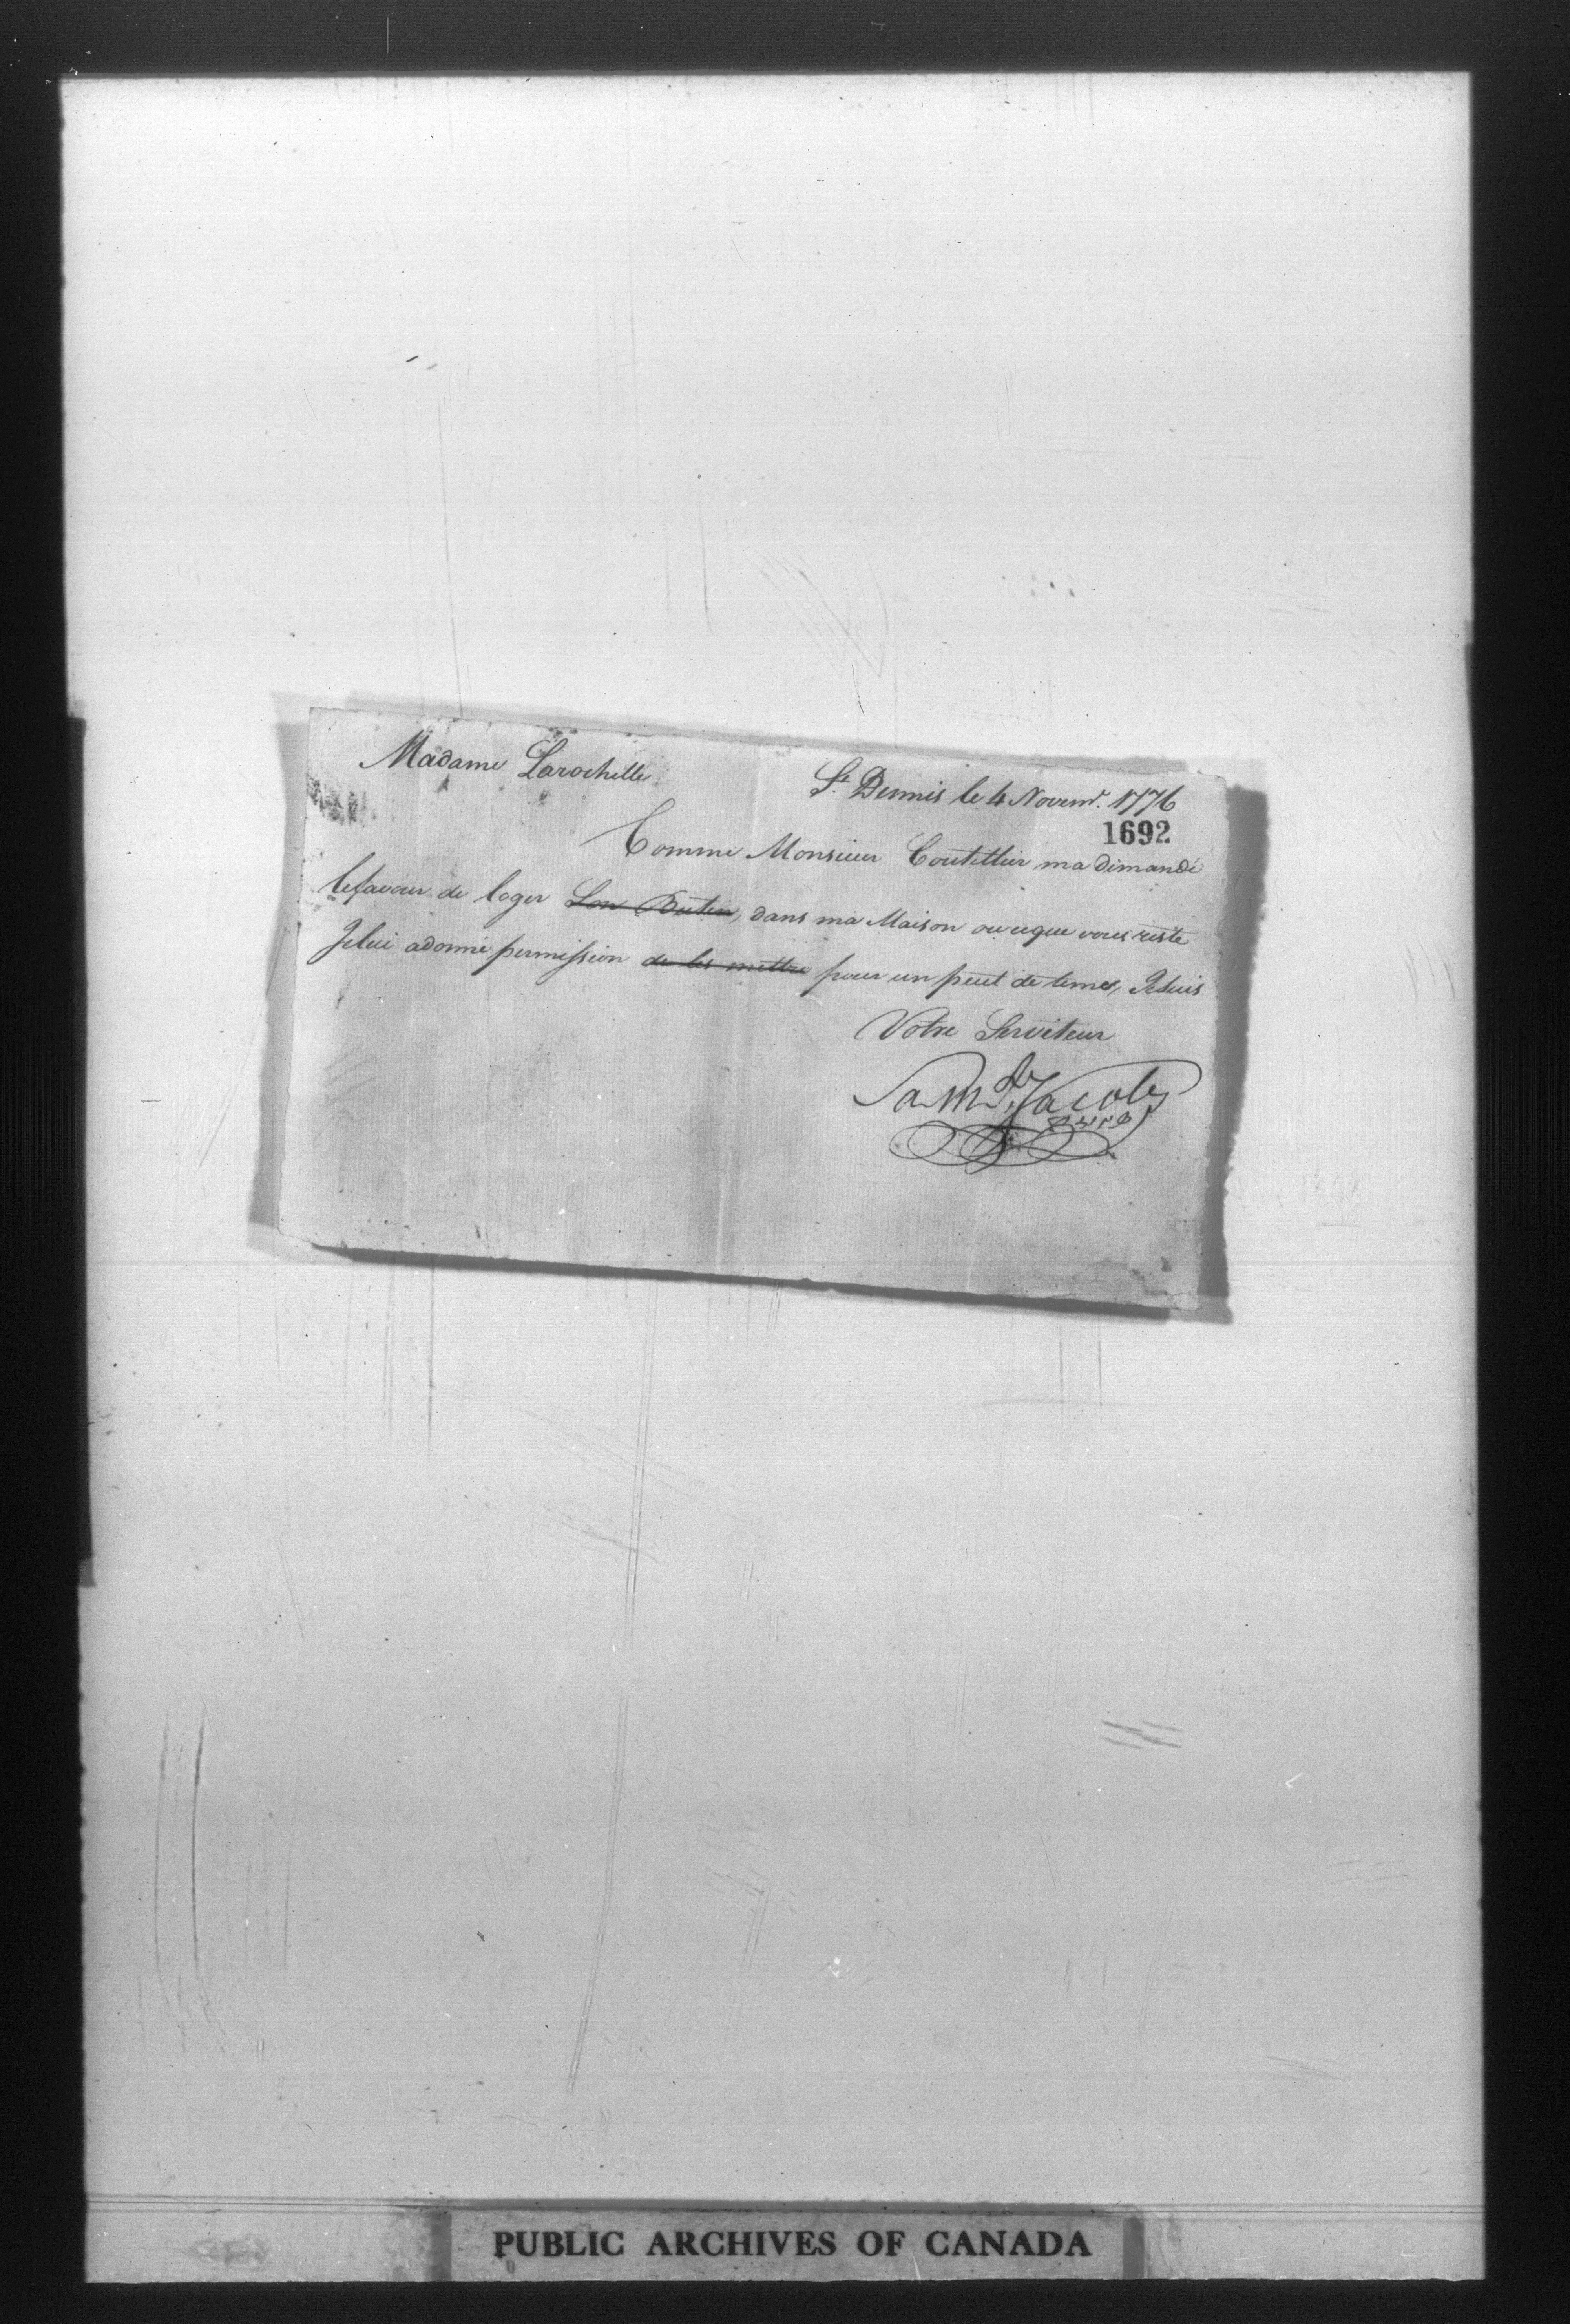 Madame Larochelle
St. Dennis le 4 Novemr. 1776
1692
Comme Monsieur Coutellier ma demandé
lefavour de loger Son Butin, dans ma Maison ou ce que vous reste
Jelui adonné permission de les mettre pour un peut de temes, Jesuis
Votre Serviteur
Samll. Jacobs
PUBLIC ARCHIVES OF CANADA